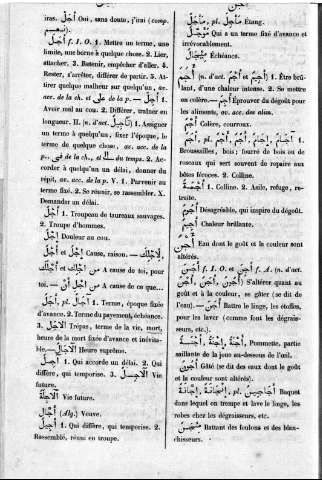 iras. أَجَلْ Oui, sans doute, j'irai (comp.
أَجَلَ f. I. O. 1. Mettre un terme, une
limite, une borne à quelque chose. 2. Lier,
attacher. 3. Retenir, empêcher d'aller. 4.
Rester, s'arrêter, différer de partir. 5. At-
tirer quelque malheur sur quelqu'un, av.
acc. de la ch. et على de la p. — أَجِلَ 1.
Avoir mal au cou. 2. Différer, traîner en
longueur. II. (n. d'act. تَأْجِيل) 1. Assigner
un terme à quelqu'un, fixer l'époque, le
terme de quelque chose, av. acc. de la
p., فى de la ch., et الى du temps. 2. Ac-
corder à quelqu'un un délai, donner du
répit, av. acc. de la p. V. 1. Parvenir au
terme fixé. 2. Se réunir, se rassembler. X.
Demander un délai.
إِجْل 1. Troupeau de taureaux sauvages.
2. Troupe d'hommes.
إِجْل Douleur au cou.
أَجْل et إِجْل Cause, raison. — لِأَجْلِكَ
et من أَجْلِكَ A cause de toi, pour
toi. — من أَجْلِ أَنْ A cause de ce que...
أَجَل, pl. آجَال 1. Terme, époque fixée
d'avance. 2. Terme du payement, échéance.
3. الاجل Trépas, terme de la vie, mort,
heure de la mort fixée d'avance et inévita-
ble. — الاجل Heure suprême.
أَجِل 1. Qui accorde un délai. 2. Qui
diffère, qui temporise. 3. الآجِل Vie
future.
الآجِلَة Vie future.
(Alg.) Veuve.
أَجِيل 1. Qui diffère, qui temporise. 2.
Rassemblé, réuni en troupe.
مَأْجَل, pl. مَآجِل Étang.
مُؤَجَّل Qui a un terme fixé d'avance et
irrévocablement.
Échéance.
أَجَمَ (n. d'act. أَجْم et أَجِيم) 1. Être brû-
lant, d'une chaleur intense. 2. Se mettre
en colère. — أَجِمَ Éprouver du dégoût pour les
aliments, av. acc. des alim.
أَجَم Colère, courroux.
Broussailles, bois; fourré de bois ou de
roseaux qui sert souvent de repaire aux
bêtes féroces. 2. Colline.
أَجَمَة 1. Colline. 2. Asile, refuge, re-
traite.
Désagréable, qui inspire du dégoût.
أَجِيم Chaleur brûlante.
أَجْن Eau dont le goût et la couleur sont
altérés.
أَجَنَ f. I. O. et أَجِنَ f. A. (n. d'act.
أَجْن, أَجَن, أُجُون) S'altérer quant au
goût et à la couleur, se gâter (se dit de
l'eau). — أَجَنَ Battre le linge, les étoffes,
pour les laver (comme font les dégrais-
seurs, etc.).
أَجْنَة, إِجْنَة, أُجْنَة Pommette, partie
saillante de la joue au-dessous de l'œil.
آجِن Gâté (se dit des eaux dont le goût
et la couleur sont altérés).
إِجَّانَة, pl. أَجَاجِين Baquet
dans lequel on trempe et lave le linge, les
robes chez les dégraisseurs, etc.
Battant des foulons et des blan-
chisseurs.